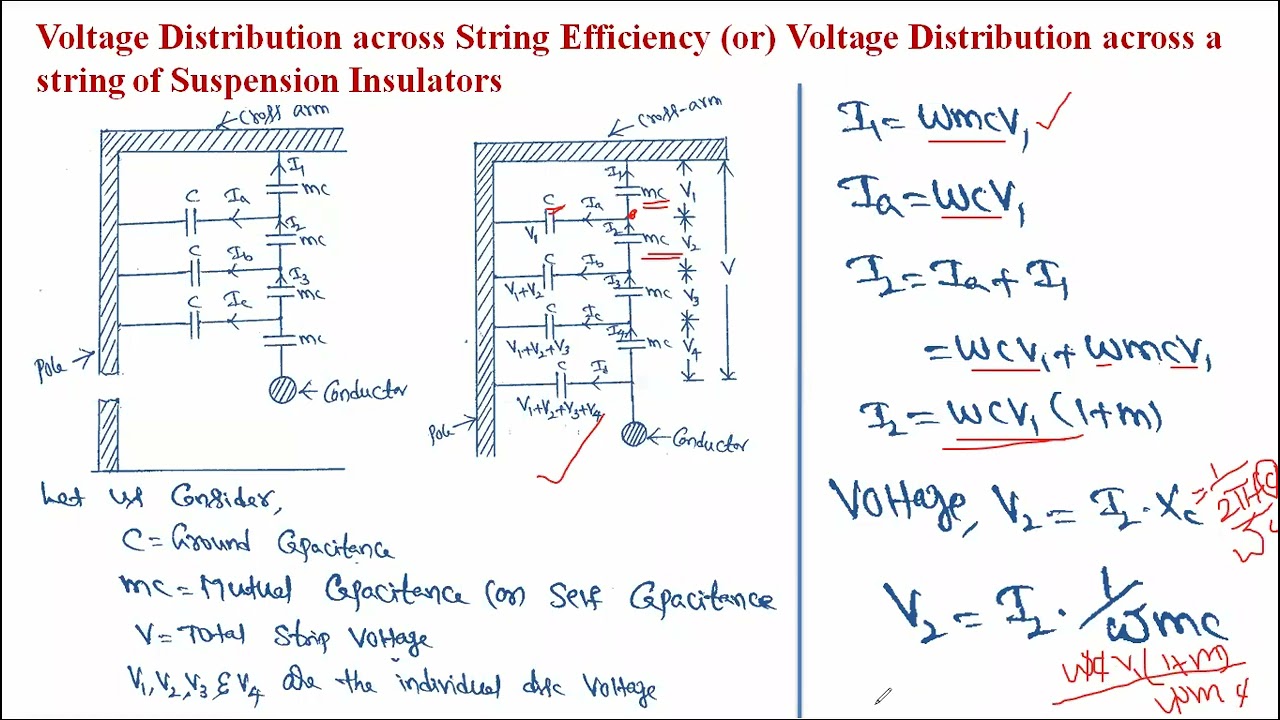 Voltage Distribution across String Efficiency (or) Voltage Distribution across a
string of Suspension Insulators
Cross arm
I1
mc
C
Ia
I2
mc
C
Ib
I3
mc
C
Ic
mc
Pole
Conductor
Cross-arm
I1
mc
V1
C
Ia
V1
I2
mc
V2
V
C
Ib
V1+V2
I3
mc
V3
C
Ic
V1+V2+V3
I4
mc
V4
C
Id
V1+V2+V3+V4
Pole
Conductor
Let us Consider,
C = Ground Capacitance
mc = Mutual Capacitance (or) Self Capacitance
V = Total Strip Voltage
V1, V2, V3 & V4 are the individual disc Voltage
I1 = ωmcV1
Ia = ωcV1
I2 = Ia + I1
= ωcV1 + ωmcV1
I2 = ωcV1 (1+m)
Voltage, V2 = I2 · Xc = 1/2πfc
V2 = I2 · 1/ωmc
ωc V1 (1+m)
ωm c